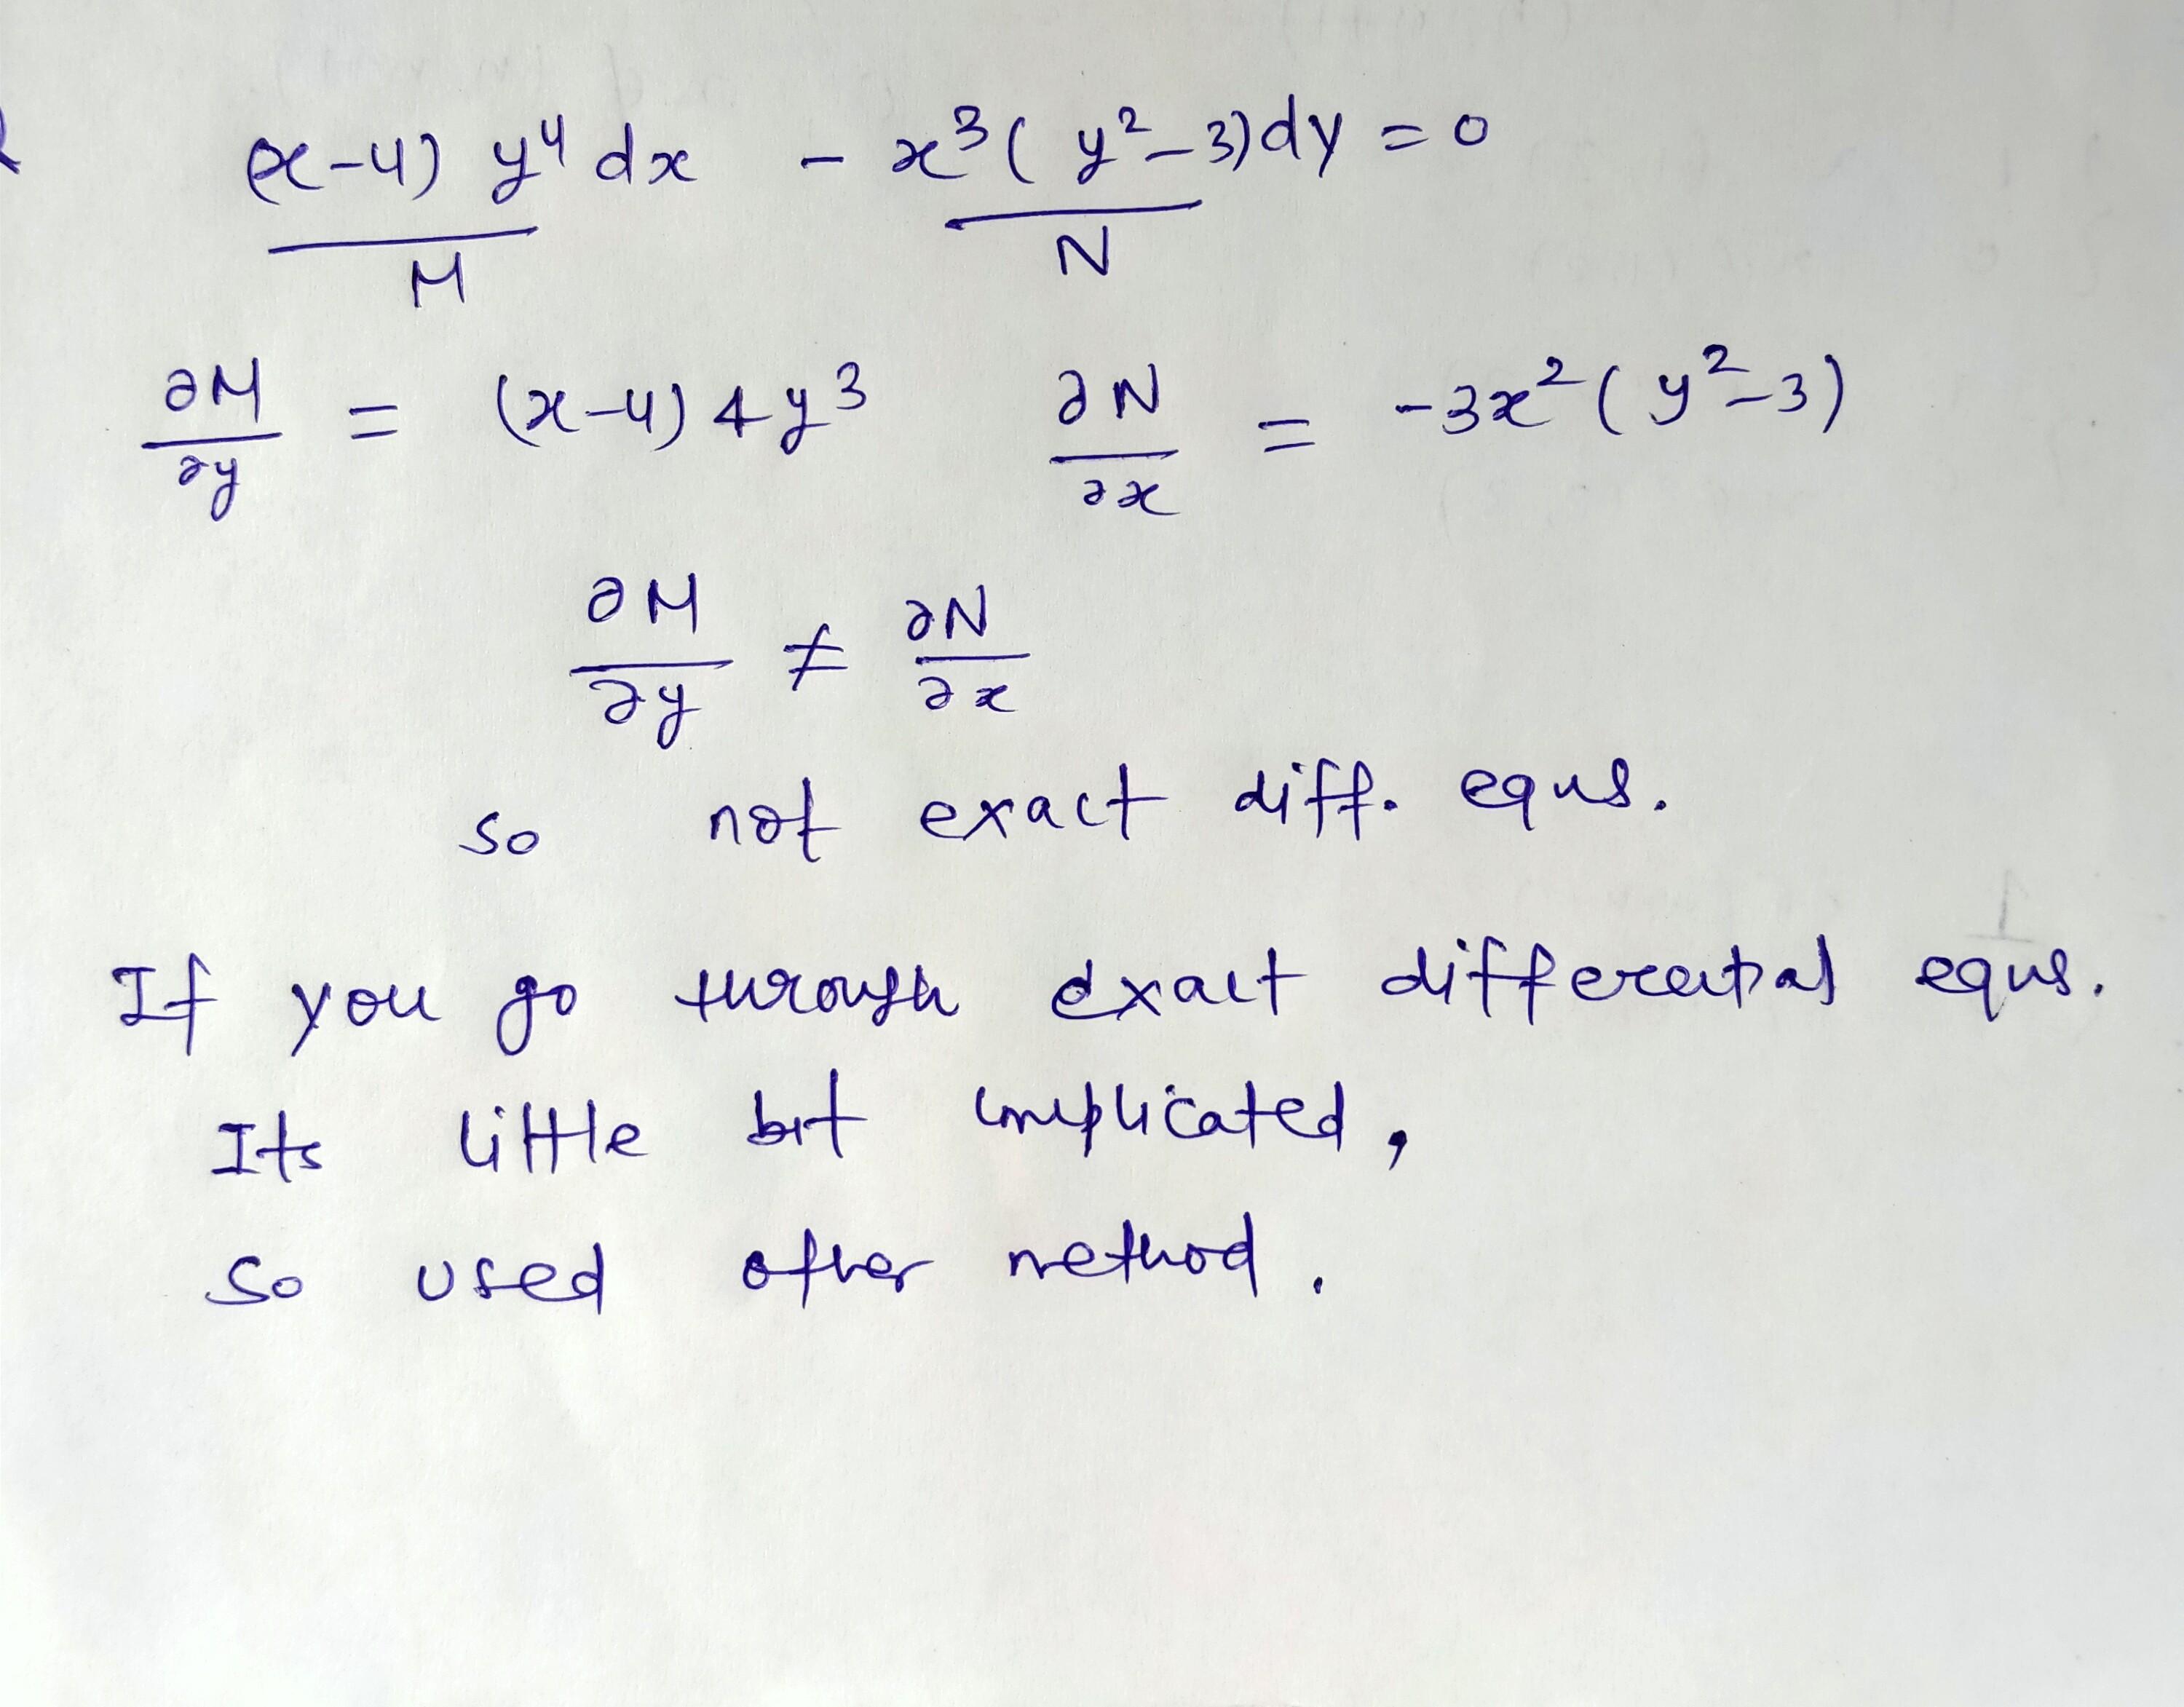 (x-4) y⁴ dx - x³( y²-3)dy = 0
M N
∂M/∂y = (x-4) 4y³ ∂N/∂x = -3x² ( y²-3)
∂M/∂y ≠ ∂N/∂x
so not exact diff. equs.
If you go through exact differential equs.
Its little bit complicated,
so used other method.